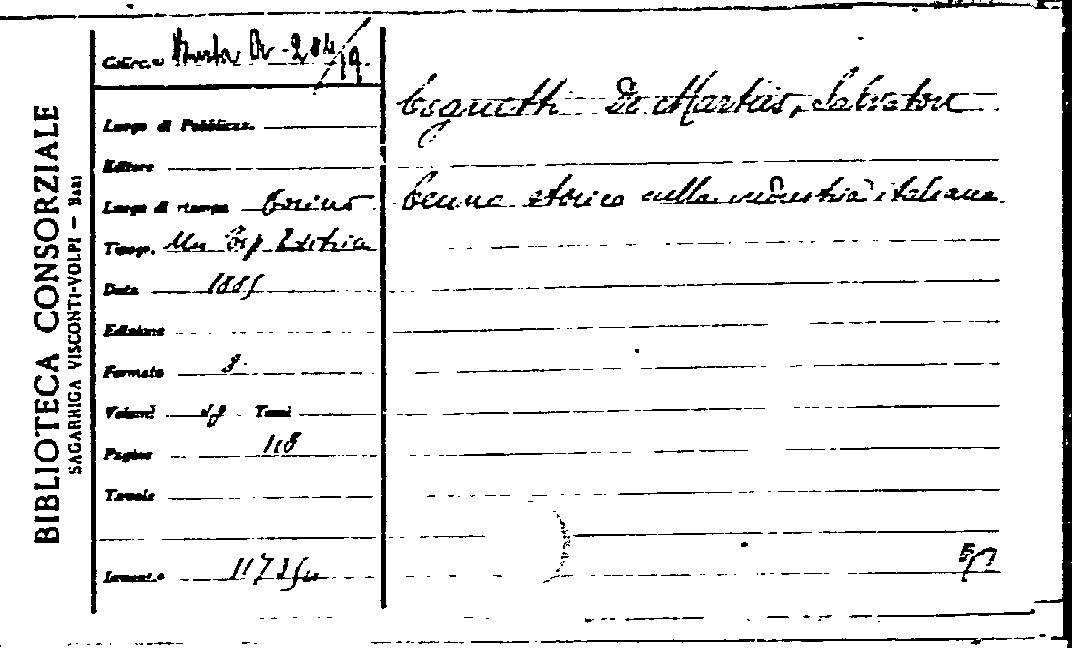 BIBLIOTECA CONSORZIALE
SAGARRIGA VISCONTI-VOLPI — BARI
Collocaz. Busta Dr - 284/19
Luogo di Pubblicaz.
Editore
Luogo di stampa Torino
Tipogr. Un Tip Editrice
Data 1885
Edizione
Formato 8.
Volumi Tomi
Pagine 118
Tavole
Inventario
Cognetti De Martiis, Salvatore
Cenno storico sulla industria italiana.